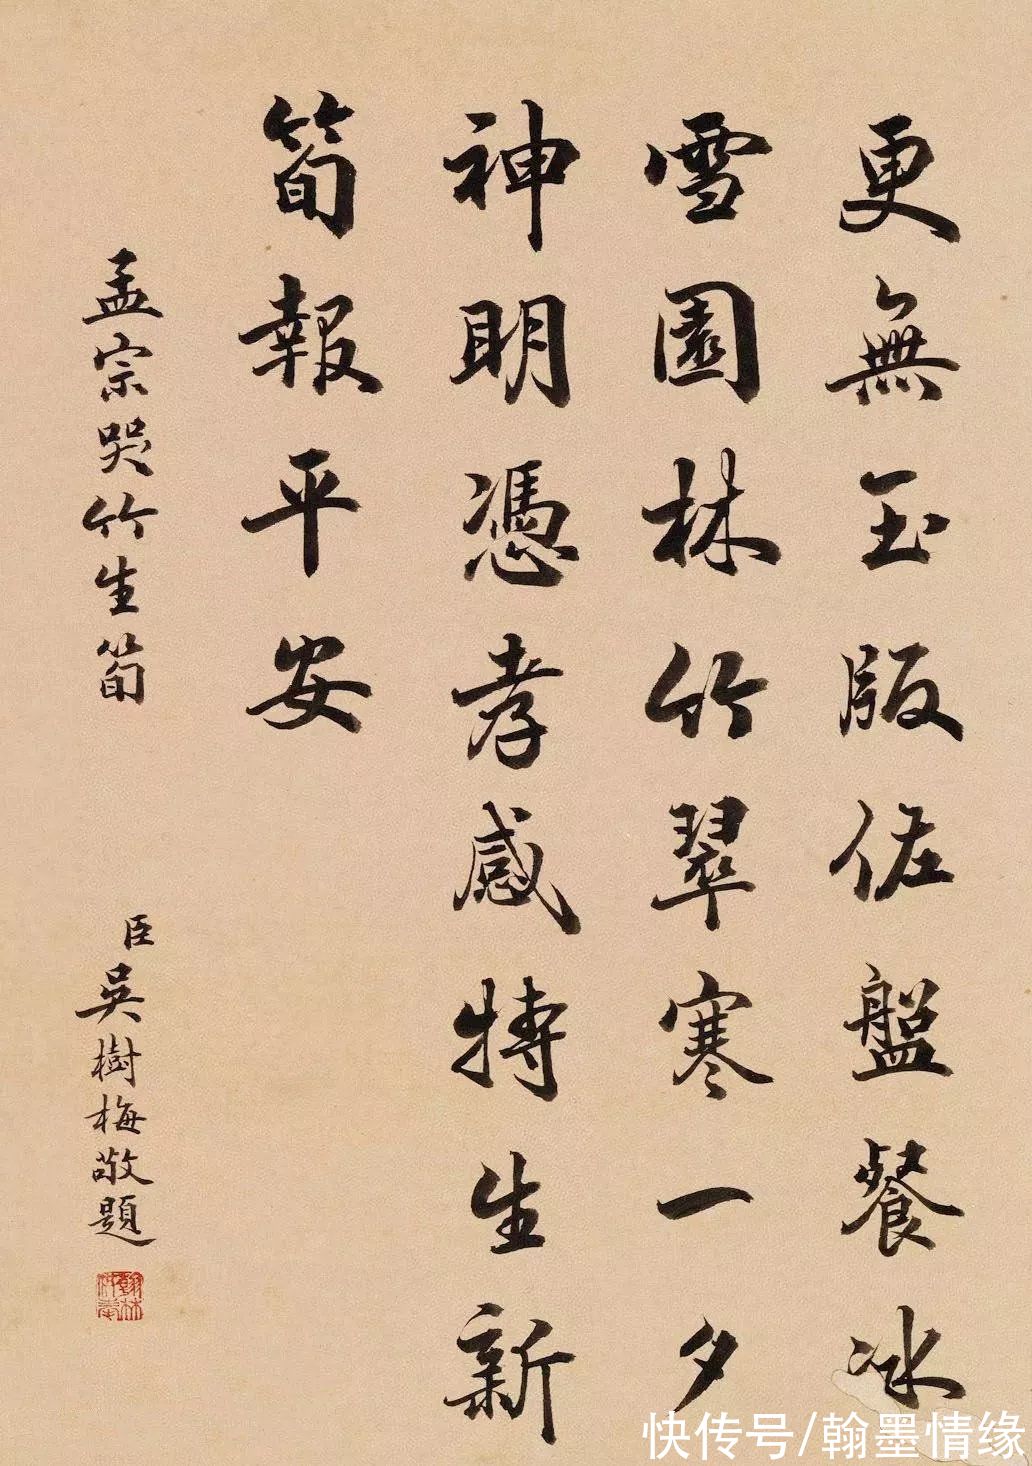 更無玉版佐盤餐冰
雪園林竹翠寒一夕
神明憑孝感特生新
筍報平安
孟宗哭竹生筍
臣吳樹梅敬題
快传号/翰墨情缘